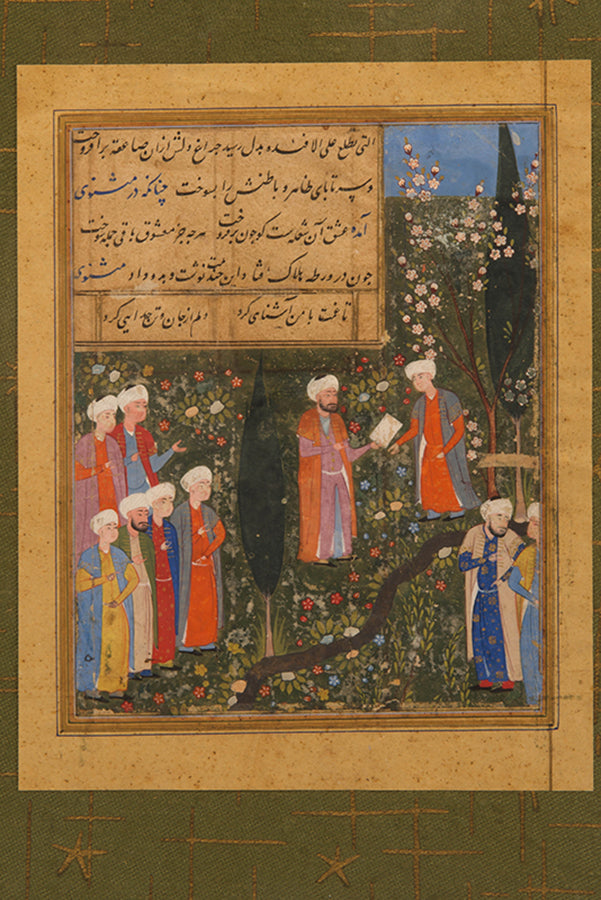 التی تطلع علی الافئده بدل رسید چراغ دلش ازان صاعقه برافروخت
و سرتاپای ظاهر و باطنش را بسوخت چنانکه در مثنوی
آمده عشق آن شعله است کو چون برفروخت هر چه جز معشوق باقی جمله سوخت
چون در ورطه هلاک فتاد این چند بیت نوشت و بدو داد مثنوی
تا غمت با من آشنای کرد دلم از جان و تن جدایی کرد